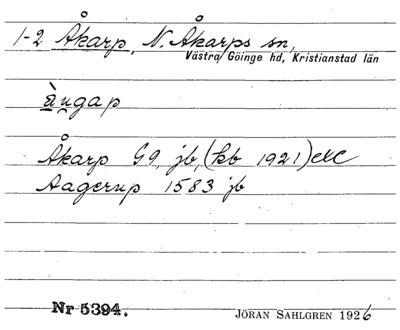 1-2 Åkarp, N. Åkarps sn,
Västra Göinge hd, Kristianstad län
àu̯gap
Åkarp G9, jb, (kb 1921) etc
Aagerup 1583 jb
Nr 5394. JÖRAN SAHLGREN 1926